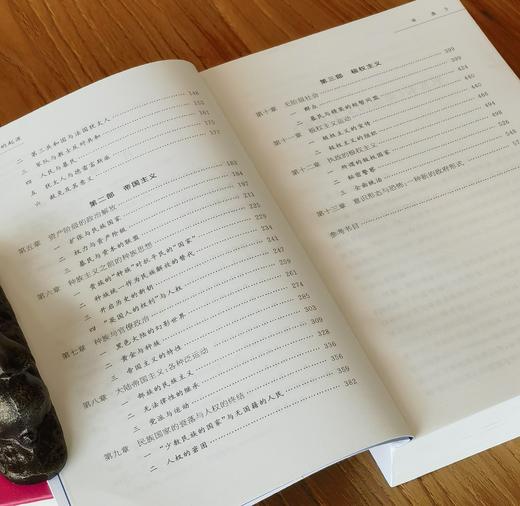 的起源
二 第三共和国与法国犹太人 148
三 军队与教士反对共和 152
四 人民与暴民 161
五 犹太人与德雷富斯派 175
六 赦免及其意义 177
第二部 帝国主义 183
第五章 资产阶级的政治解放 184
一 扩张与民族国家
二 权力与资产阶级
三 暴民与资本的联盟 221
第六章 种族主义之前的种族思想 225
一 贵族的“种族”对抗平民的“国家” 229
二 种族统一作为民族解放的替代 234
三 开启历史的新钥 239
四 “英国人的权利”与人权 247
第七章 种族与官僚政治 261
一 黑色大陆的幻影世界 267
二 黄金与种族 274
三 帝国主义的特性 285
第八章 大陆帝国主义:各种泛运动 303
一 部族的民族主义 309
二 无法律性的继承 328
三 党派与运动 336
第九章 民族国家的衰落与人权的终结 356
一 “少数民族的国家”与无国籍的人民 359
二 人权的窘困 382
第三部 极权主义 399
第十章 无阶级社会 399
一 群众
二 暴民与精英的短暂同盟
第十一章 极权主义运动 440
一 极权主义的宣传 440
二 极权主义的组织
第十二章 执政的极权主义 494
一 所谓的极权国家 498
二 秘密警察 526
三 全面统治 548
第十三章 意识形态与恐怖:一种新的政府形式
参考书目